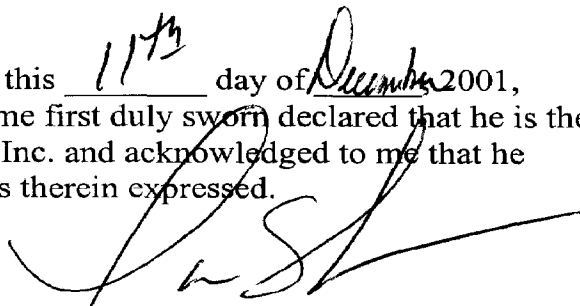 this 11th day of December 2001,
me first duly sworn declared that he is the
Inc. and acknowledged to me that he
s therein expressed.